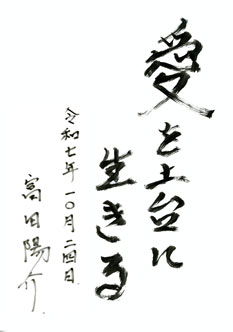 愛を土台に
生きる
令和七年一〇月二四日
富田陽介